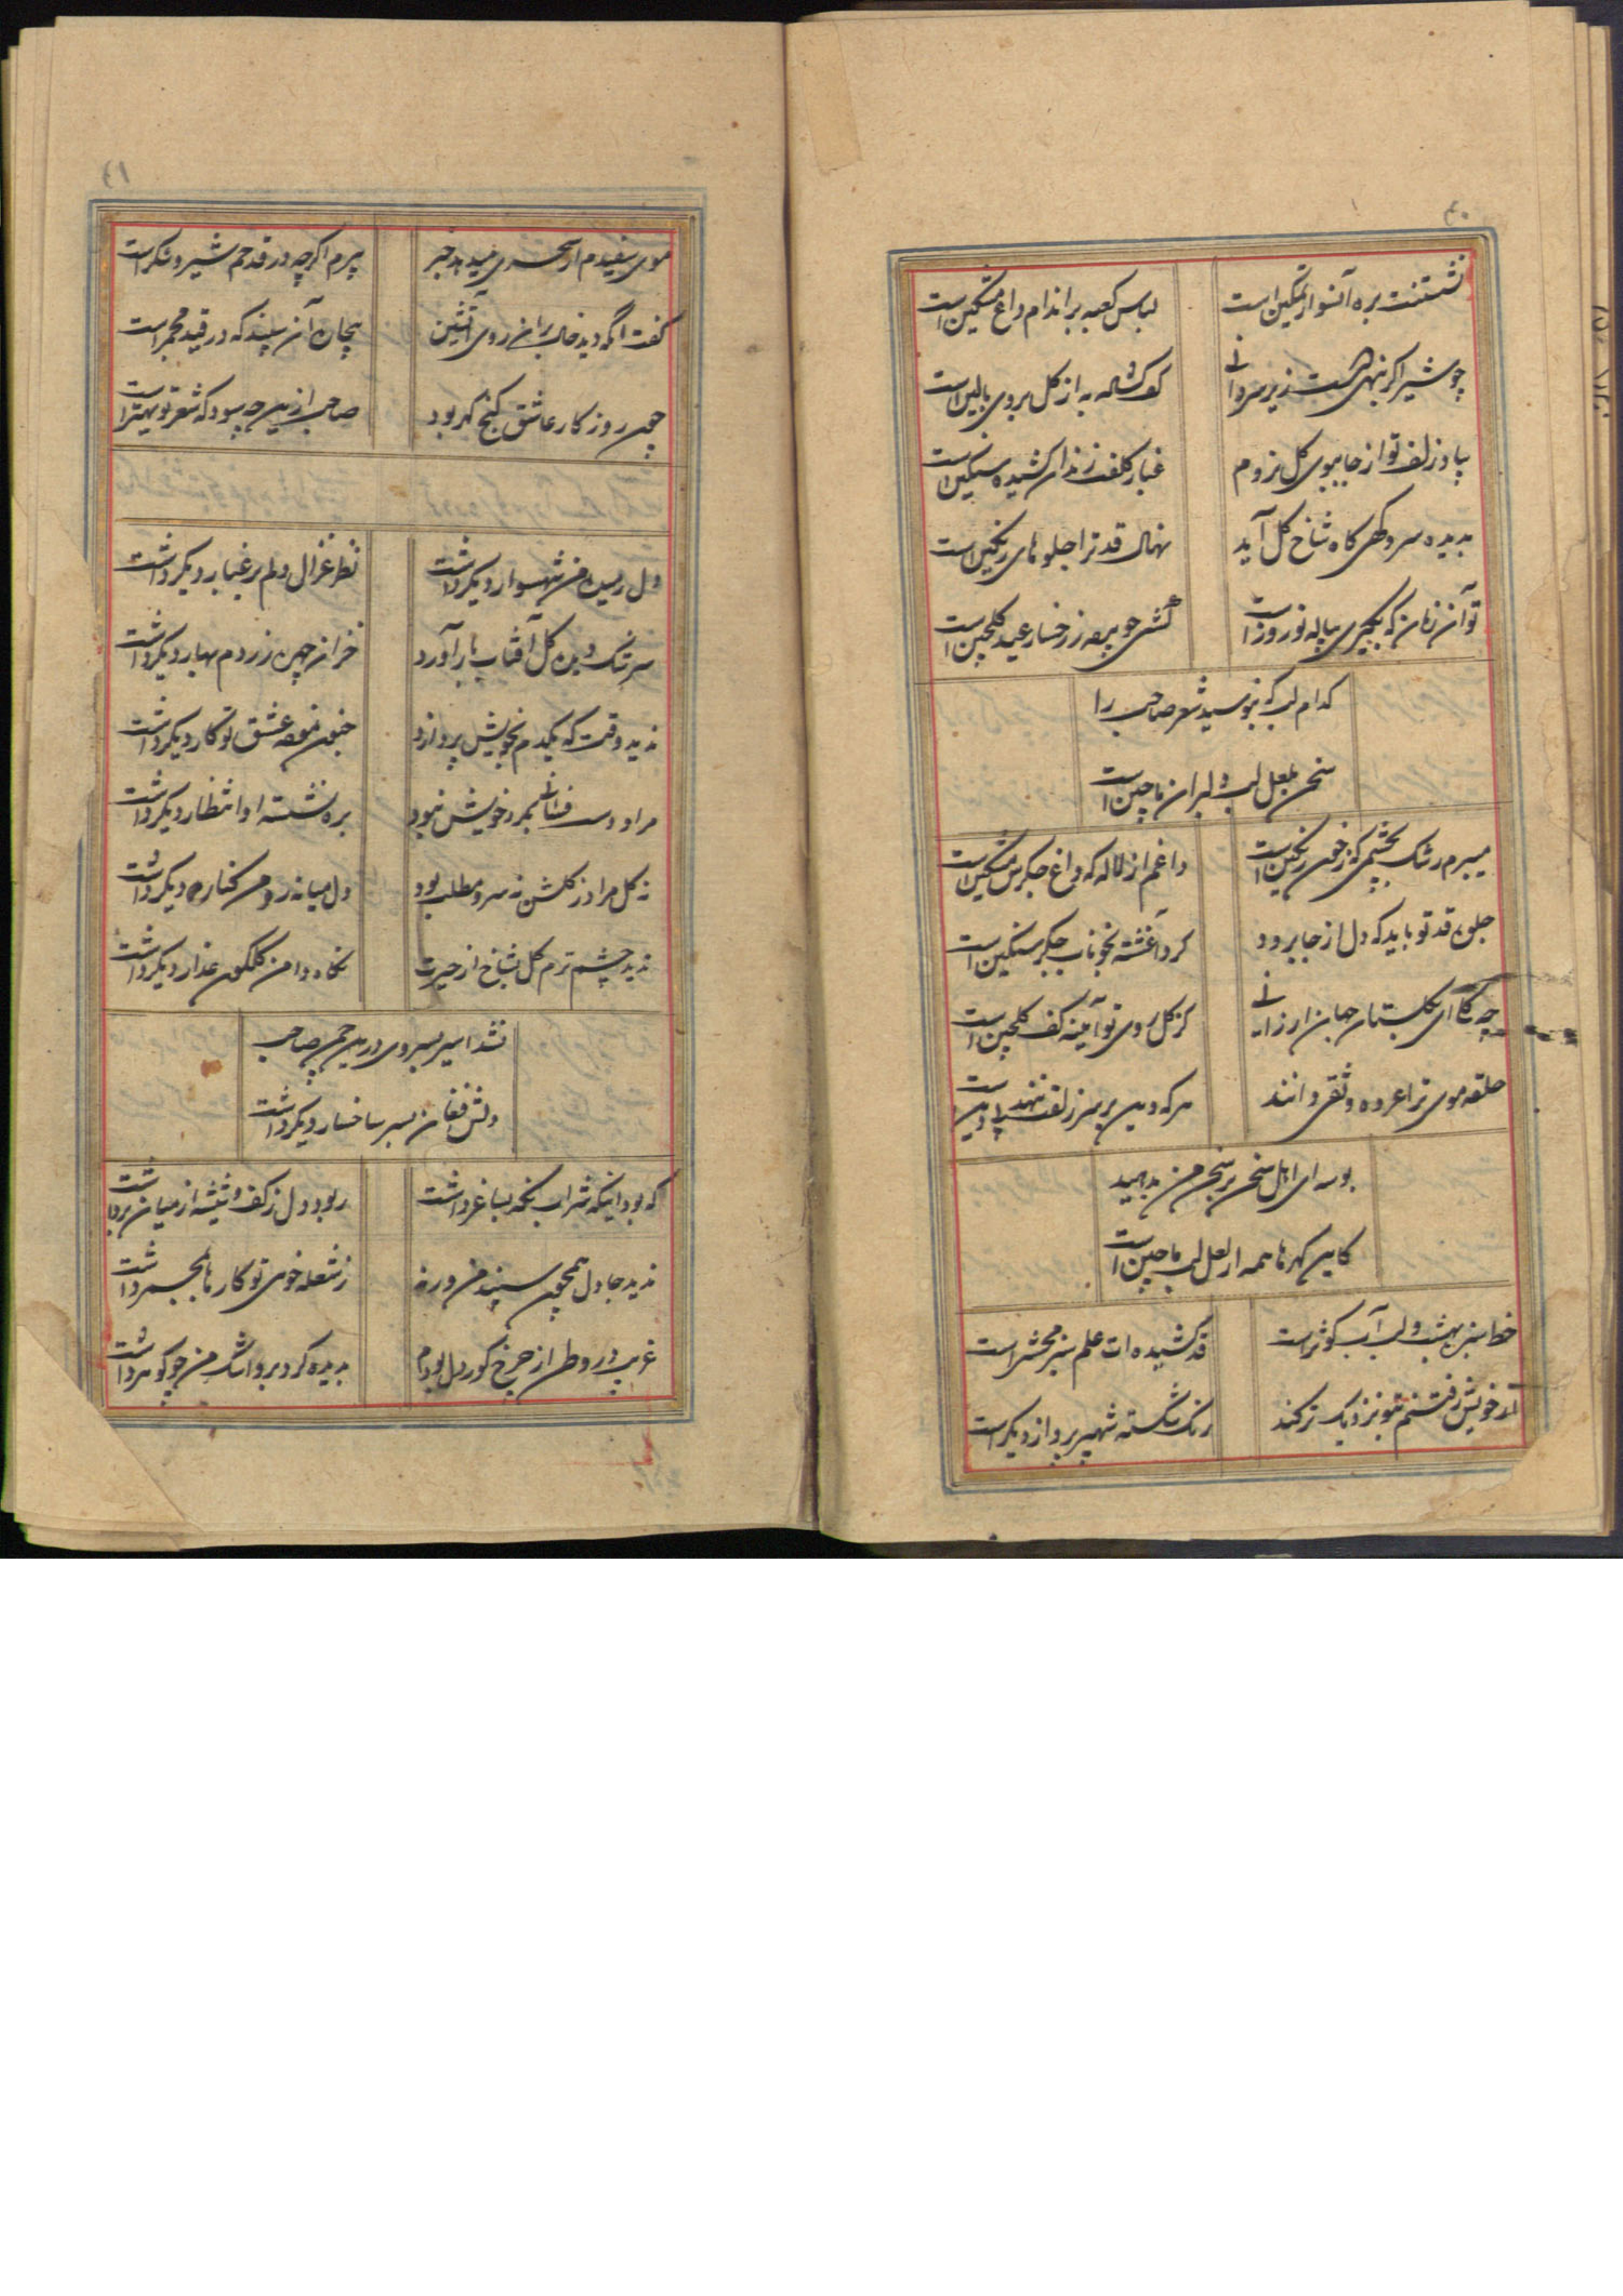 ۴۰
نشستنت بره آنسوار تمکین است
لباس کعبه بر اندام داغ مشکین است
چو شیر اگر بنهی هست زیر سر دانی
که کاله به از گل بروی بالین است
بیاد زلف تو از جا ببوی گل نروم
غبار کلفت زندان کشیده سنگین است
بدیده سرو کهی گاه شاخ گل آید
نهال قد ترا جلوهای رنگین است
تو آن زمان که بگیری پیاله نوروز است
کشی چو پرده ز رخسار عید گلچین است
کدام لب که نبوسید شعر صاحب را
سخن بلعل لب دلبران ما چین است
میبرم رشک بچشمی که ز خون رنگین است
داغم از لاله که داغ جگرش مشکین است
جلوه قد تو باید که دل از جا برود
کرد آغشته بخوناب جگر سنگین است
چه گل آئی بگلستان جهان ارزانی
کز گل روی تو آیینه کف گلچین است
حلقه موی ترا عروه وثقی دانند
هر که دین بر سر زلفت ننهد بیدین است
بوسه ای اهل سخن بر سخن من بدهید
کاین گهرها همه از لعل لب ما چین است
خط سبز بهشت و لب آب کوثر است
قد کشیده ات علم سبز محشر است
از خویش رفتنم بتو نزدیک تر کند
رنگ شکسته شهپر پرواز دیگر است
۴۱
موی سفیدم از سحری میدهد خبر
پیرم اگرچه در قدحم شیر و شکر است
گفت آنکه دید خال بر آن روی آتشین
بیچاره آن سپند که در قید مجمر است
چون روزگار عاشق گنج گهر بود
صاحب ازین چه سود که شعر تو بهتر است
دل رمیده من شهسوار دیگر داشت
نظر غزال دلم بر غبار دیگر داشت
سرشک دیده گل آفتاب بار آورد
خزان چهره زردم بهار دیگر داشت
ندید وقت که یکدم بخویش پردازد
جنون نمود عشق تو کار دیگر داشت
مراد دست فشانی بمرد خویش نبود
بره نشسته او انتظار دیگر داشت
نه گل مراد ز گلشن نه سرو مطلب بود
دل میانه رو من کناره دیگر داشت
ندید چشم ترم گل بشاخ از حیرت
نگاه دامن گلگون عذار دیگر داشت
نشد اسیر بسروی درین چمن صاحب
دلش فغان بسر شاخسار دیگر داشت
که بود اینکه شراب نگه بساغر داشت
ربود دل ز کف و شیشه از میان برداشت
ندید جا دل همچون سپند من ورنه
ز شعله خوی تو کارها بمجمر داشت
غریب در وطن از چرخ کوردل بودم
بدیده گرد بر و اشک من چو گوهر داشت